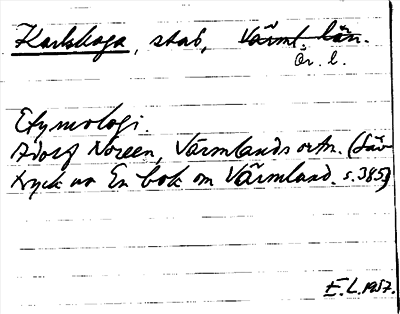 Karlskoga, stad, Värml. län.
Ör. l.
Etymologi.
Adolf Noreen, Värmlands ortn. (Sär-
tryck ur En bok om Värmland. s. 385)
E. L. 1957.